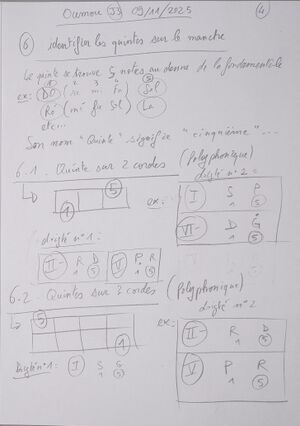 Oumou J3 09/11/2025 4
6 identifier les quintes sur le manche
La quinte se trouve 5 notes au dessus de la fondamentale
1 2 3 4 5
ex: DO (ré mi Fa) Sol
Ré (mi fa Sol) La
etc...
Son nom "Quinte" signifie "cinquième"...
6.1. Quinte sur 2 cordes (Polyphonique)
doigté n°2 =
5
1
ex:
I S P
1 5
VI- D G
1 5
doigté n°1:
II- R D
1 5
V P R
1 5
6-2- Quintes sur 3 cordes (Polyphonique)
doigté n°2
5
1
ex:
II- R D
1 5
V P R
1 5
Doigté n°1: I S S
1 5